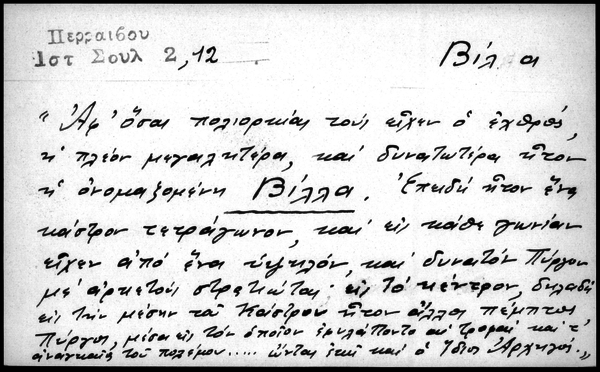 Περραιβου
1στ Σουλ 2,12
Βίλα
"Ἀφ' ὅσαι πολιορκίας τοὺς εἶχεν ὁ ἐχθρός,
ἡ πλέον μεγαλητέρα, καὶ δυνατωτέρα ἦτον
ἡ ὀνομαζομένη Βίλλα. Ἐπειδὴ ἦτον ἕνα
κάστρον τετράγωνον, καὶ εἰς κάθε γωνίαν
εἶχεν ἀπὸ ἕνα ὑψηλόν, καὶ δυνατὸν Πύργον
μὲ ἀρκετοὺς στρατιώτας· εἰς τὸ κέντρον, δηλαδὴ
εἰς τὴν μέσην τοῦ Κάστρου ἦτον ἄλλος πέμπτος
Πύργος, μέσα εἰς τὸν ὁποῖον ἐφυλάττοντο αἱ τροφαὶ καὶ τ'
ἀναγκαῖα τοῦ πολέμου..... ὤντας ἐκεῖ καὶ ὁ Ἴδιος Ἀρχηγός."